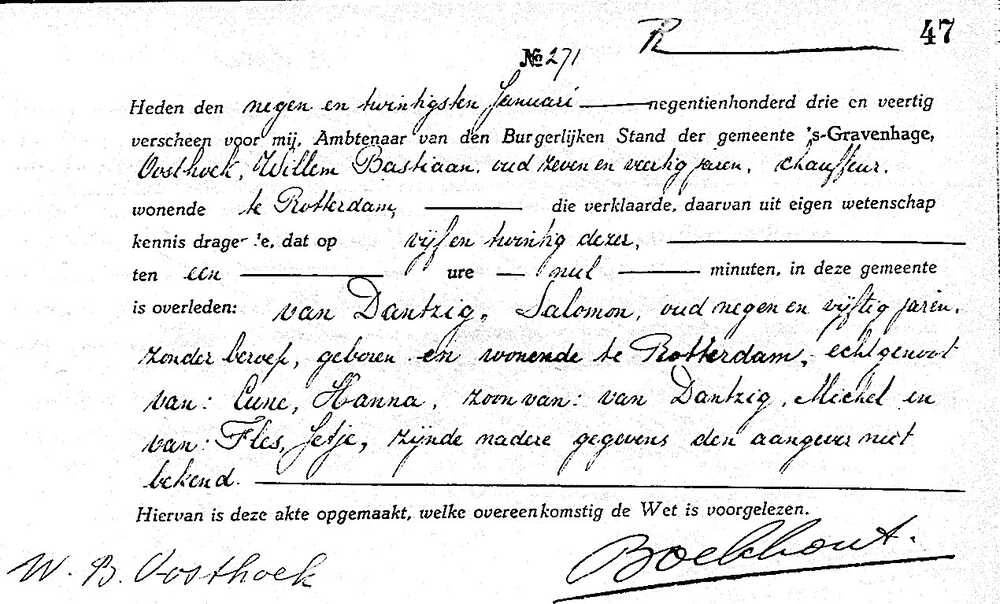 R 47
№ 271
Heden den negen en twintigsten Januari negentienhonderd drie en veertig
verscheen voor mij, Ambtenaar van den Burgerlijken Stand der gemeente 's-Gravenhage,
Oosthoek, Willem Bastiaan, oud zeven en veertig jaren, chauffeur,
wonende te Rotterdam, die verklaarde, daarvan uit eigen wetenschap
kennis drage e, dat op vijf en twintig dezer,
ten een ure nul minuten, in deze gemeente
is overleden: van Dantzig, Salomon, oud negen en vijftig jaren,
zonder beroep, geboren en wonende te Rotterdam, echtgenoot
van: Cune, Hanna, zoon van: van Dantzig, Michel en
van: Fles, Jetje, zijnde nadere gegevens den aangever niet
bekend.
Hiervan is deze akte opgemaakt, welke overeenkomstig de Wet is voorgelezen.
W. B. Oosthoek Boekhout.